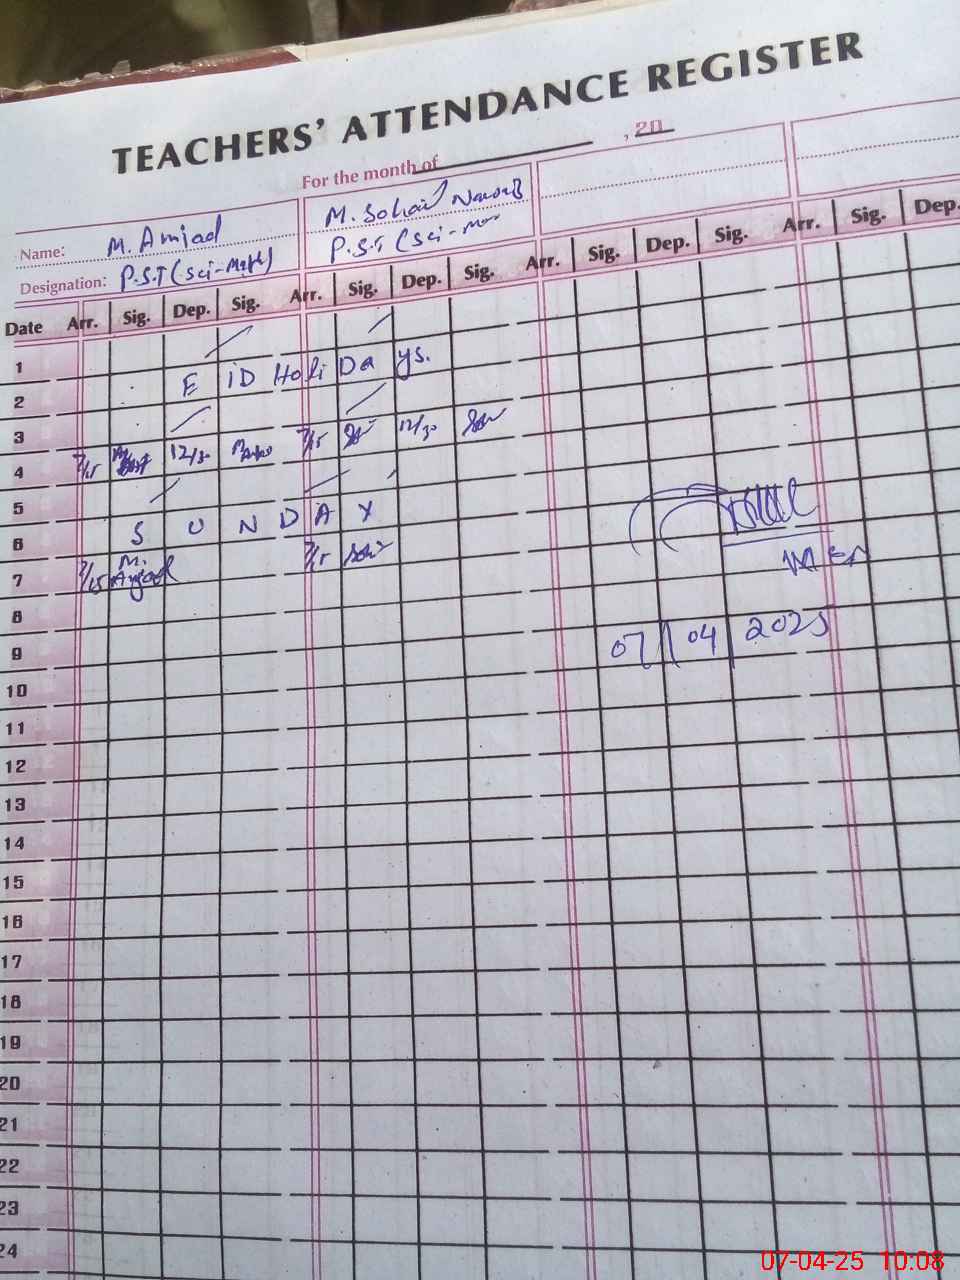 TEACHERS' ATTENDANCE REGISTER
For the month of , 20
Name: M. Amjad M. Sohail
Designation: P.S.T (Sci-Math) P.S.T (Sci-
Date Arr. Sig. Dep. Sig. Arr. Sig. Dep. Sig. Arr. Sig. Dep. Sig. Arr. Sig. Dep.
1
E ID Holi Da ys.
2
3
4 7/15 12/30 7/15 12/30
5
S U N D A Y
6
7 7/15 M. Amjad 7/15
8
9 07/04/2025
10
11
12
13
14
15
16
17
18
19
20
21
22
23
24
07-04-25 10:08